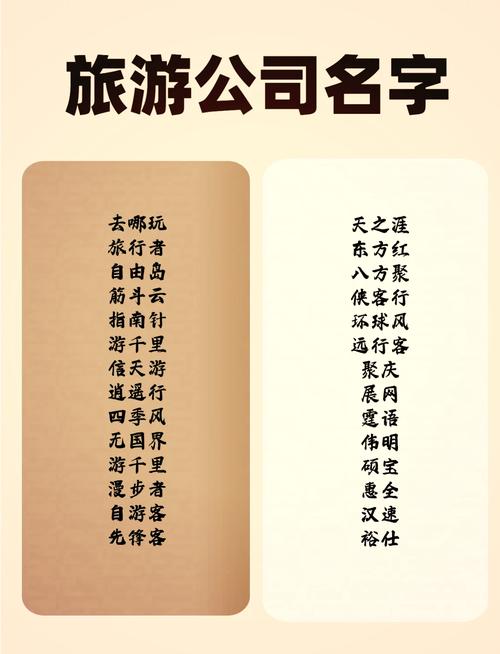 旅游公司名字
去哪玩
旅行者
自由岛
筋斗云
指南针
游千里
信天游
逍遥行
四季风
无国界
游千里
漫步者
自游客
先锋客
天之涯
东方红
八方聚
侠客行
环球风
远行客
聚庆
展网
霆语
伟明
硕宝
惠全
汉速
裕仕